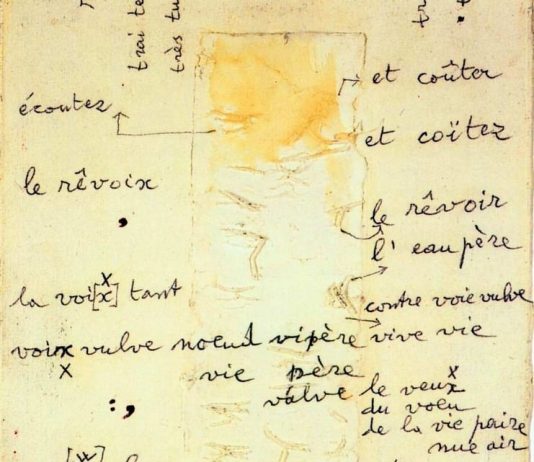 trai te
très tu
tr
t
écoutez
et coûter
et coïtez
le rêvoix
,
le rêvoir
l'eau père
la voi[x]x tant
contre voie vulve
voixx vulve noeud vipère vive vie
x
vie père
valve le veuxx
du voeu
:,
de la vie paire
nue air
[w]